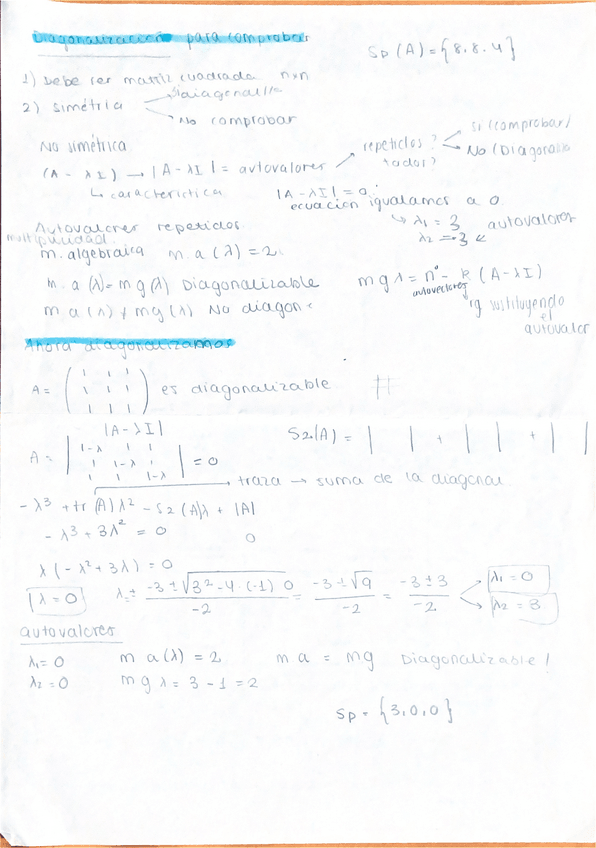 Diagonalización para comprobar
Sp (A) = {8.8.4}
1) Debe ser matriz cuadrada n×n
2) simétria
No comprobar
No simétrica
(A - λI) → |A - λI| = autovalores
repetidos?
todos?
si (comprobar)
No (Diagona
↳ característica
|A - λI| = 0
ecuación igualamos a 0
↳ λ1 = 3 autovalores
λ2 = 3
Autovalores repetidos
m. algebraica m.a (λ) = 2
m.a (λ) = mg (λ) Diagonalizable
m a (λ) ≠ mg (λ) No diagon
m g λ = nº - R (A - λI)
autovectores
rg sustituyendo
el
autovalor
Ahora diagonalizamos
A = ( 1 1 1
1 1 1
1 1 1 ) es diagonalizable
|A - λI|
A = | 1-λ 1 1
1 1-λ 1
1 1 1-λ | = 0
S2(A) = | | + | | + | |
traza → suma de la diagonal
-λ³ + tr (A) λ² - S2 (A)λ + |A|
-λ³ + 3λ² = 0
0
λ (-λ² + 3λ) = 0
λ = 0
λ = -3 ± √3² - 4·(-1) 0 / -2 = -3 ± √9 / -2 = -3 ± 3 / -2
λ1 = 0
λ2 = 3
autovalores
λ1 = 0 m a (λ) = 2 m a = mg Diagonalizable!
λ2 = 0 m g λ = 3 - 1 = 2
Sp = {3,0,0}